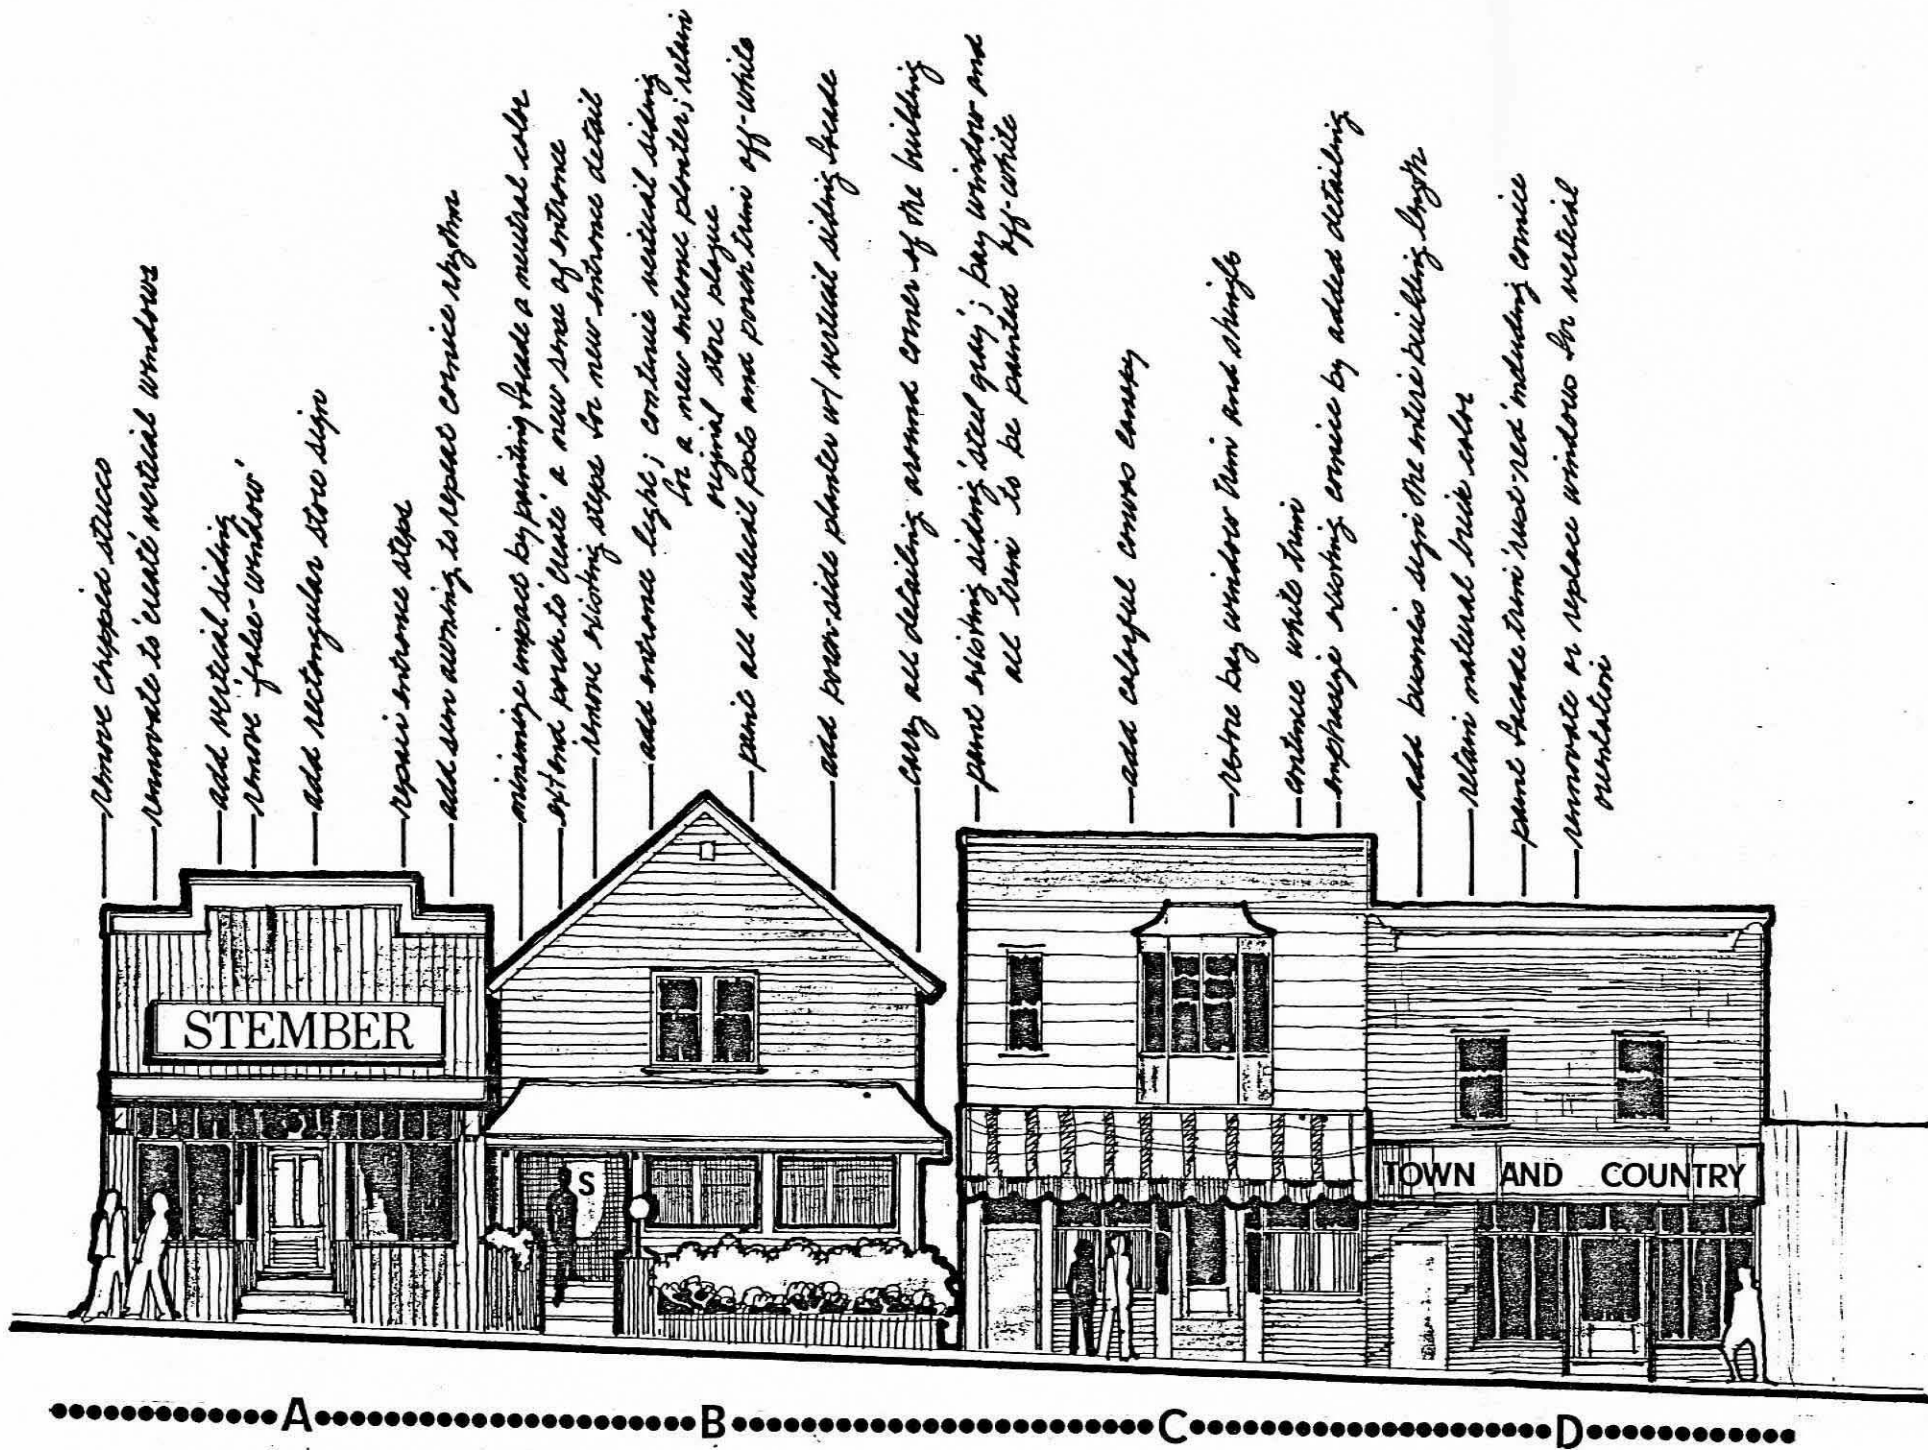 remove chipped stucco
renovate to 'create' vertical windows
add vertical siding
remove 'false-window'
add rectangular store sign
repair entrance steps
add sun awning to repeat cornice rhythm
minimize impact by painting facade a neutral color
extend porch to 'create' a new sense of entrance
remove existing steps for new entrance detail
add entrance light; continue vertical siding
for a new entrance planter; retain
original store plaque
paint all vertical posts and porch trim off-white
add porch-side planter w/ vertical siding facade
carry all detailing around corner of the building
paint existing siding 'steel gray'; bay window and
all trim to be painted off-white
add colorful canvas canopy
restore bay window trim and shingles
continue white trim
emphasize existing cornice by added detailing
add business sign the entire building length
retain natural brick color
paint facade trim 'rust-red' including cornice
rennovate or replace windows for vertical
orientation
STEMBER
S
TOWN AND COUNTRY
A
B
C
D